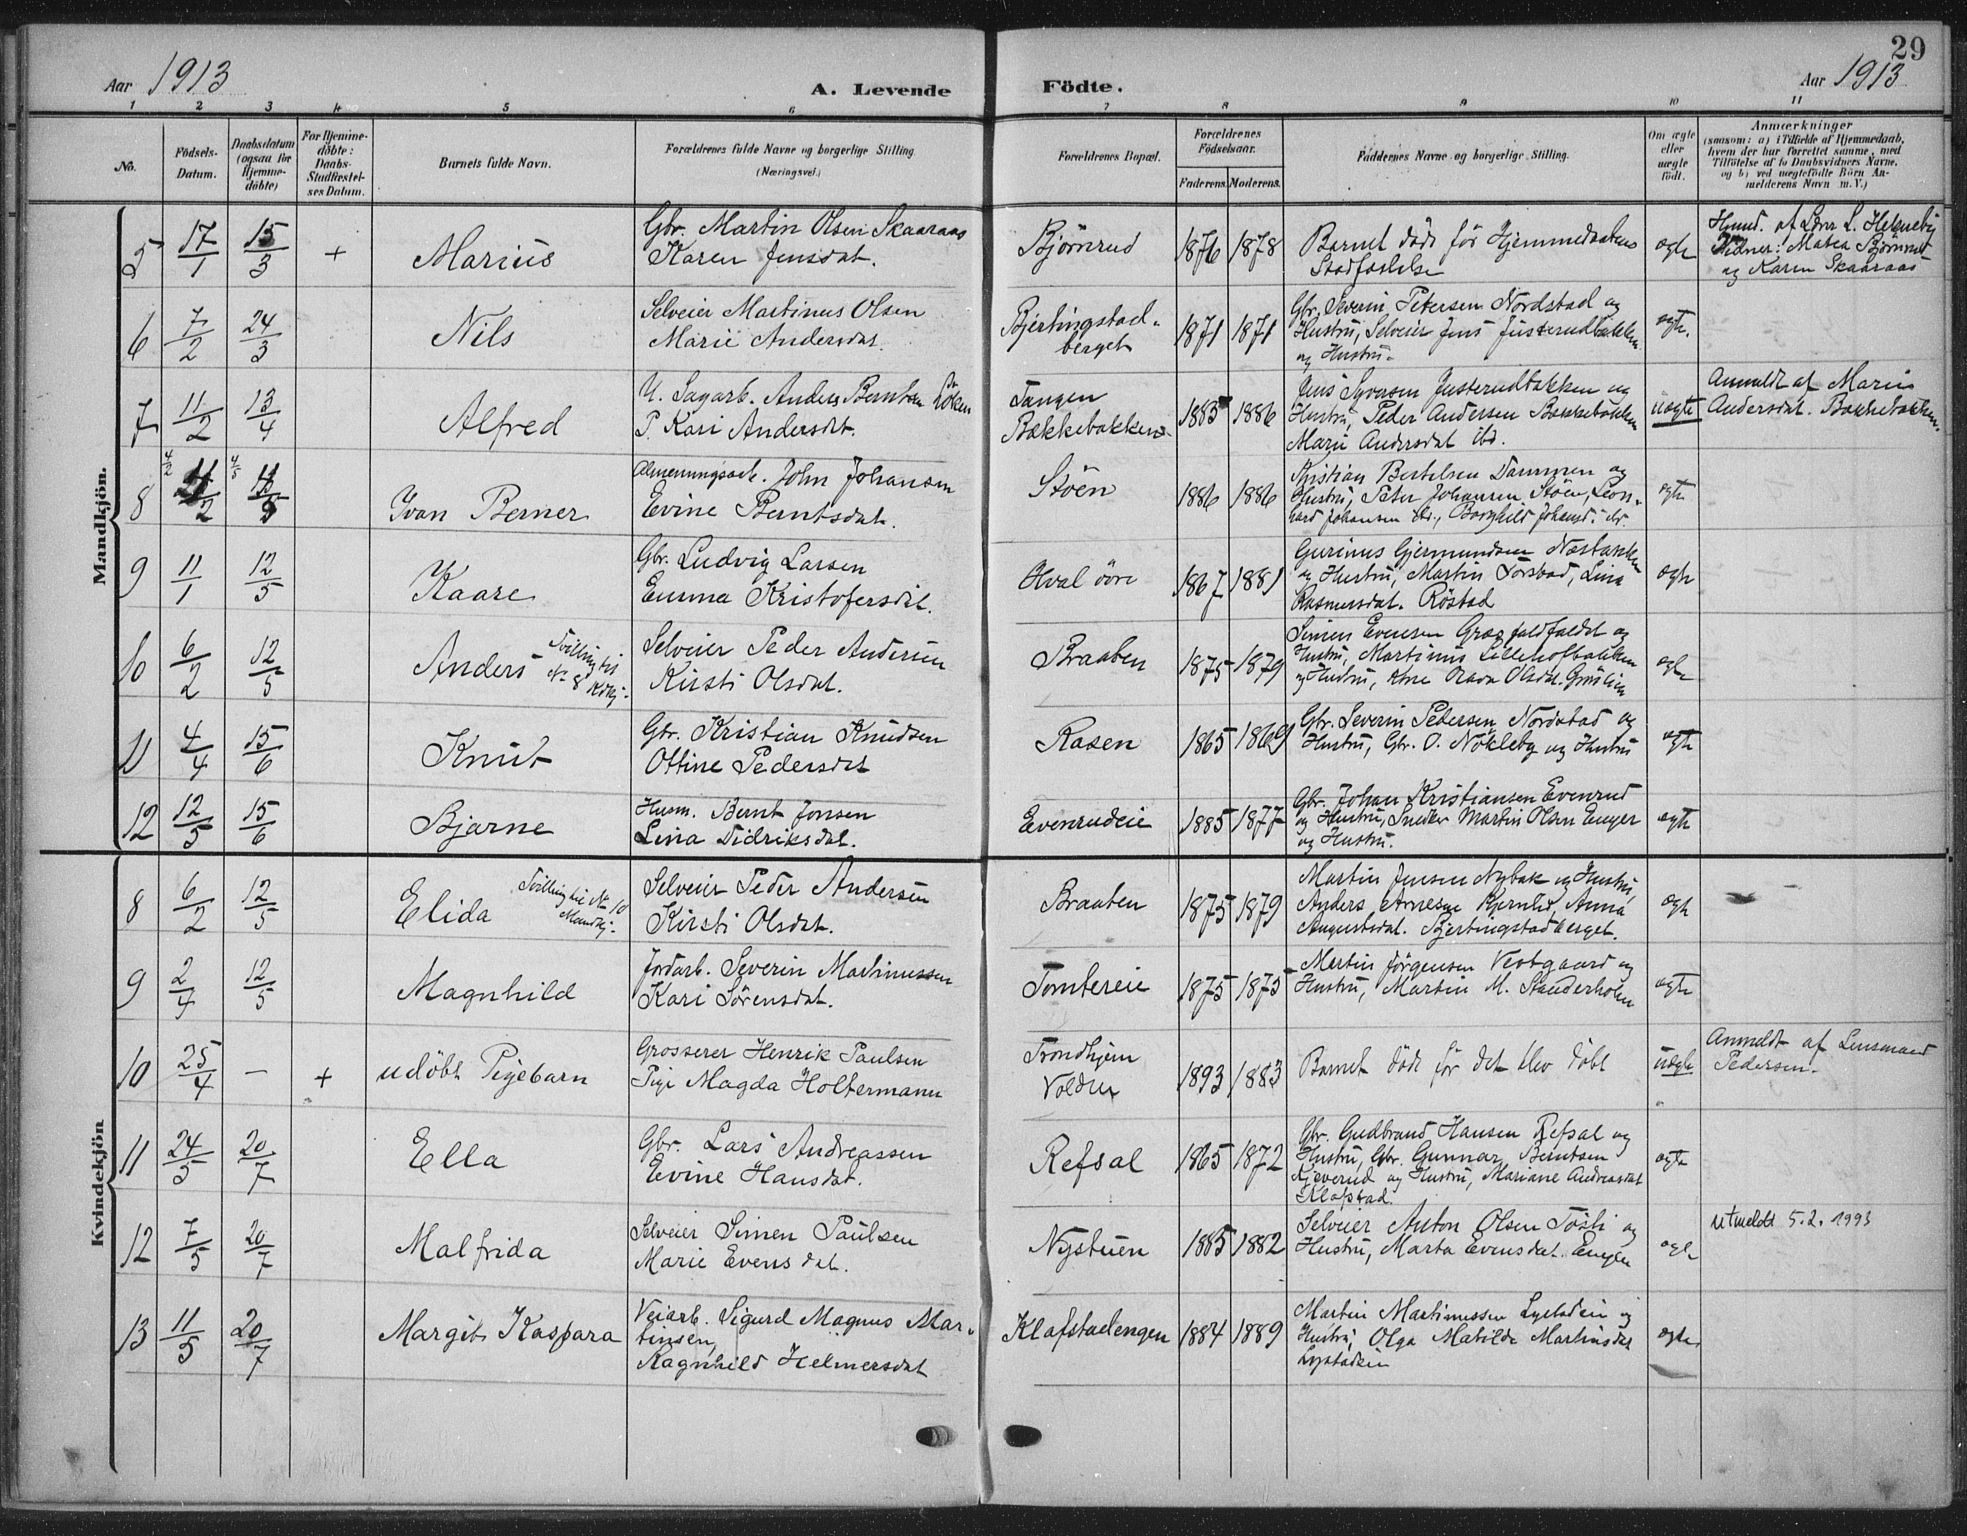 29
Aar 1913
A. Levende
Födte.
Aar 1913
1 2 3 4 5 6 7 8 9 10 11
No.
Födsels-
Datum.
Daabsdatum
(ogsaa for
Hjemme-
döbte)
For Hjemme-
döbte:
Daabs-
Stadfæstel-
ses Datum.
Barnets fulde Navn.
Forældrenes fulde Navne og borgerlige Stilling.
(Næringsvei.)
Forældrenes Bopæl.
Forældrenes
Födselsaar.
Faderens. Moderens.
Faddernes Navne og borgerlige Stilling.
Om ægte
eller
uægte
födt.
Anmærkninger
(saasom: a) i Tilfælde af Hjemmedaab,
hvem der har forrettet samme, med
Tilföielse af to Daabsvidners Navne,
og b) ved uægtefödte Börn An-
melderens Navn m. V.)
Mandkjön.
5 17/1 15/3 + Marius
Gbr. Martin Olsen Skaaraas
Karen Jensdat.
Bjørnrud 1876 1878
Barnet døde før Hjemmedaabens
Stadfæstelse
ægte
Hjmd. af L. Helmeby
Vidner: Matea Bjørnrud
og Karen Skaaraas
6 7/2 24/3 Nils
Selveier Martinus Olsen
Marie Andersdat.
Bjertingstad-
berget
1871 1871
Gbr. Severin Petersen Nordstad og
Hustru, Selveier Jens Justerudbakken
og Hustru.
ægte.
7 11/2 13/4 Alfred
U. Sagarb. Anders Berntsen Löken
P. Kari Andersdt.
Tangen
Bakkebakken
1885 1886
Jens Justerudbakken og
Hustru, Peder Andersen Bakkebakken
Marie Andersdat ibd.
uægte
Anmeldt af Marie
Andersdat. Bakkebakken.
8 4/2 4/5 Ivan Berner
Almenningsarb. John Johansen
Evine Berntsdat.
Stöen 1886 1886
Kristian Bertelsen Dammen og
Hustru, Peter Johansen Stöen, Leon-
hard Johansen ibd., Borghild Johansd. ibd.
ægte
9 11/1 12/5 Kaare
Gbr. Ludvig Larsen
Emma Kristofersdat.
Hval övre 1867 1881
Gurinus Gjermundsen Næsbakken
og Hustru, Martin Torsbad, Lina
Rasmusdat. Röstad
ægte
10 6/2 12/5 Anders
Tvilling til
No 8 Kvkj.
Selveier Peder Andersen
Kirsti Olsdat.
Braaten 1875 1879
Simen Evensen og
Hustru, Martinus Lillehofbakken
og Hustru, Olava Olsdat.
ægte
11 4/4 15/6 Knut
Gbr. Kristian Knudsen
Ottine Pedersdat
Rasen 1865 1869
Gbr. Severin Pedersen Nordstad og
Hustru, Gbr. O. Nökleby og Hustru
ægte
12 12/5 15/6 Bjarne
Husm. Bernt Jonsen
Lina Didriksdat.
Evenrudeie 1885 1877
Gbr. Johan Kristiansen Evenrud
og Hustru, Snedker Martin Olsen Enger
og Hustru.
ægte
Kvindekjön
8 6/2 12/5 Elida
Tvilling til No 10
Mandkj.
Selveier Peder Andersen
Kirsti Olsdat.
Braaten 1875 1879
Martin Jensen Nybak og Hustru,
Anders Arnesen Anna
Augustsdat. Bjertingstadberget.
ægte
9 2/4 12/5 Magnhild
Jordarb. Severin Martinussen
Kari Sörensdat.
Tomtereie 1875 1875
Martin Jörgensen Vestgaard og
Hustru, Martin M. Standerholen
ægte
10 25/4 — + udöbt Pigebarn
Grosserer Henrik Paulsen
Pige Magda Holtermann
Trondhjem
Volden
1893 1883
Barnet döde för det blev döbt
uægte
Anmeldt af Lensmand
Pedersen.
11 24/5 20/7 Ella
Gbr. Lars Andreassen
Evine Hansdat.
Refsal 1865 1872
Gbr. Gudbrand Hansen Refsal og
Hustru, Gbr. Gunnar Berntsen
Kjeverud og Hustru, Mariane Andreasdat
Klafstad.
ægte
12 7/5 20/7 Malfrida
Selveier Simen Paulsen
Marie Evensdat.
Nystuen 1885 1882
Selveier Anton Olsen Tösti og
Hustru, Marta Evensdat. Engen
ægte
utmeldt 5.2.1993
13 11/5 20/7 Margit Kaspara
Veiarb. Sigurd Magnus Mar-
tinsen,
Ragnhild Helmersdat
Klafstadengen 1884 1889
Martin Martinussen Lystadeie og
Hustru, Olga Matilde Martinsdat
Lystadeie
ægte